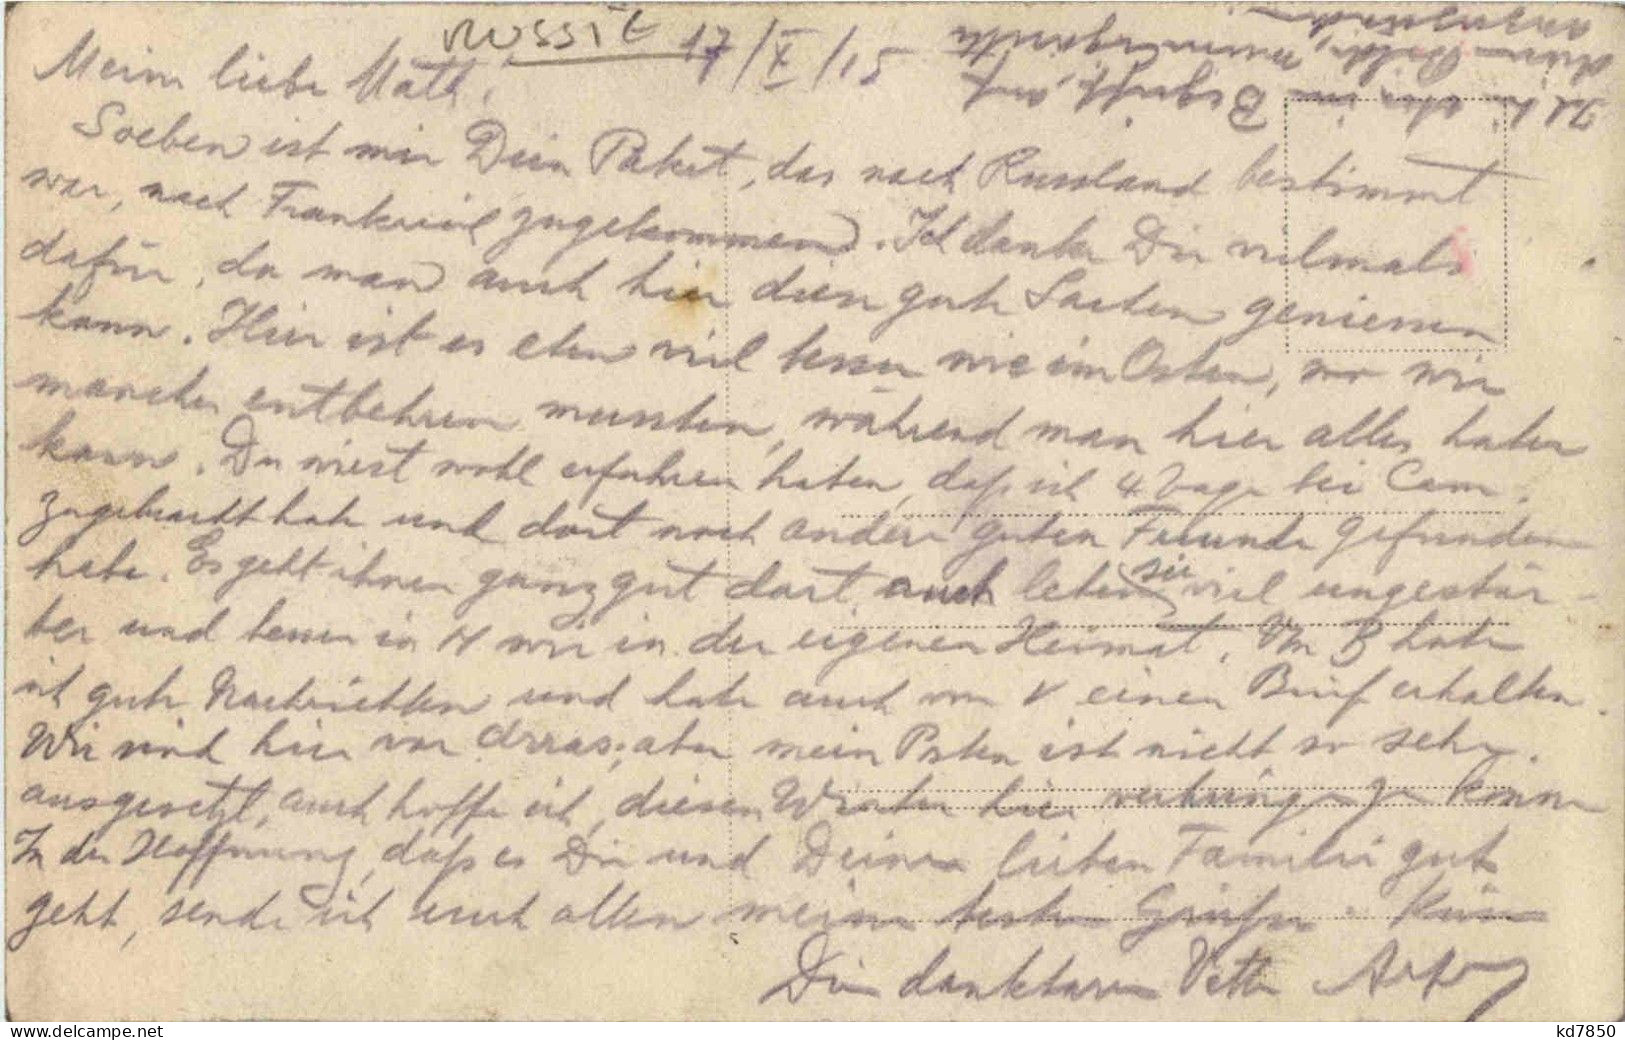 RUSSIE
17/X/15
Meine liebe Math.
Soeben ist mir Dein Paket, das nach Russland bestimmt
war, nach Frankreich zugekommen. Ich danke Dir vielmals
dafür, da man auch hier diese gute Sachen geniessen
kann. Hier ist es eben viel besser wie im Osten, wo wir
manches entbehren mussten, während man hier alles haben
kann. Du wirst wohl erfahren haben, daß ich 4 Tage bei Cam.
zugebracht habe und dort noch andere guten Freunde gefunden
habe. Es geht ihnen ganz gut dort, auch leben sie viel ungestör-
ter und besser in N wie in der eigenen Heimat. Von B habe
ich gute Nachrichten und habe auch von V einen Brief erhalten.
Wir sind hier vor Arras, aber mein Posten ist nicht so sehr
ausgesetzt, auch hoffe ich, diesen Winter hier verbringen zu können
In der Hoffnung, daß es Dir und Deiner lieben Familie gut
geht, sende ich euch allen meine besten Grüße
Dein dankbarer Vetter
Ich bin eben im Begriff, auf
kd7850